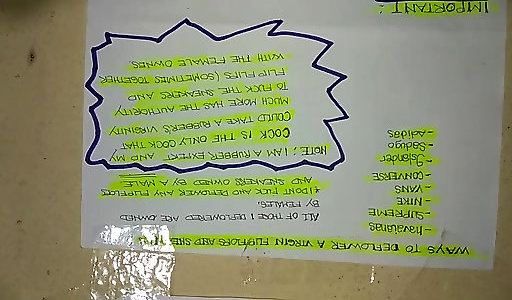 WAYS TO DEFLOWER A VIRGIN FLIPFLOPS AND SNEAKERS
- havaianas
- SUPREME
- NIKE
- VANS
- CONVERSE
- Islander
- Adidas
ALL OF THOSE I DEFLOWERED ARE OWNED
BY FEMALES.
* I DON'T FUCK AND DEFLOWER ANY FLIPFLOPS
AND SNEAKERS OWNED BY A MALE
NOTE: I AM A RUBBER EXPERT AND MY
COCK IS THE ONLY COCK THAT
COULD TAKE A RUBBER'S VIRGINITY
MUCH MORE HAS THE AUTHORITY
TO FUCK THE SNEAKERS AND
FLIPFLOPS (SOMETIMES TOGETHER
WITH THE FEMALE OWNERS
IMPORTANT: